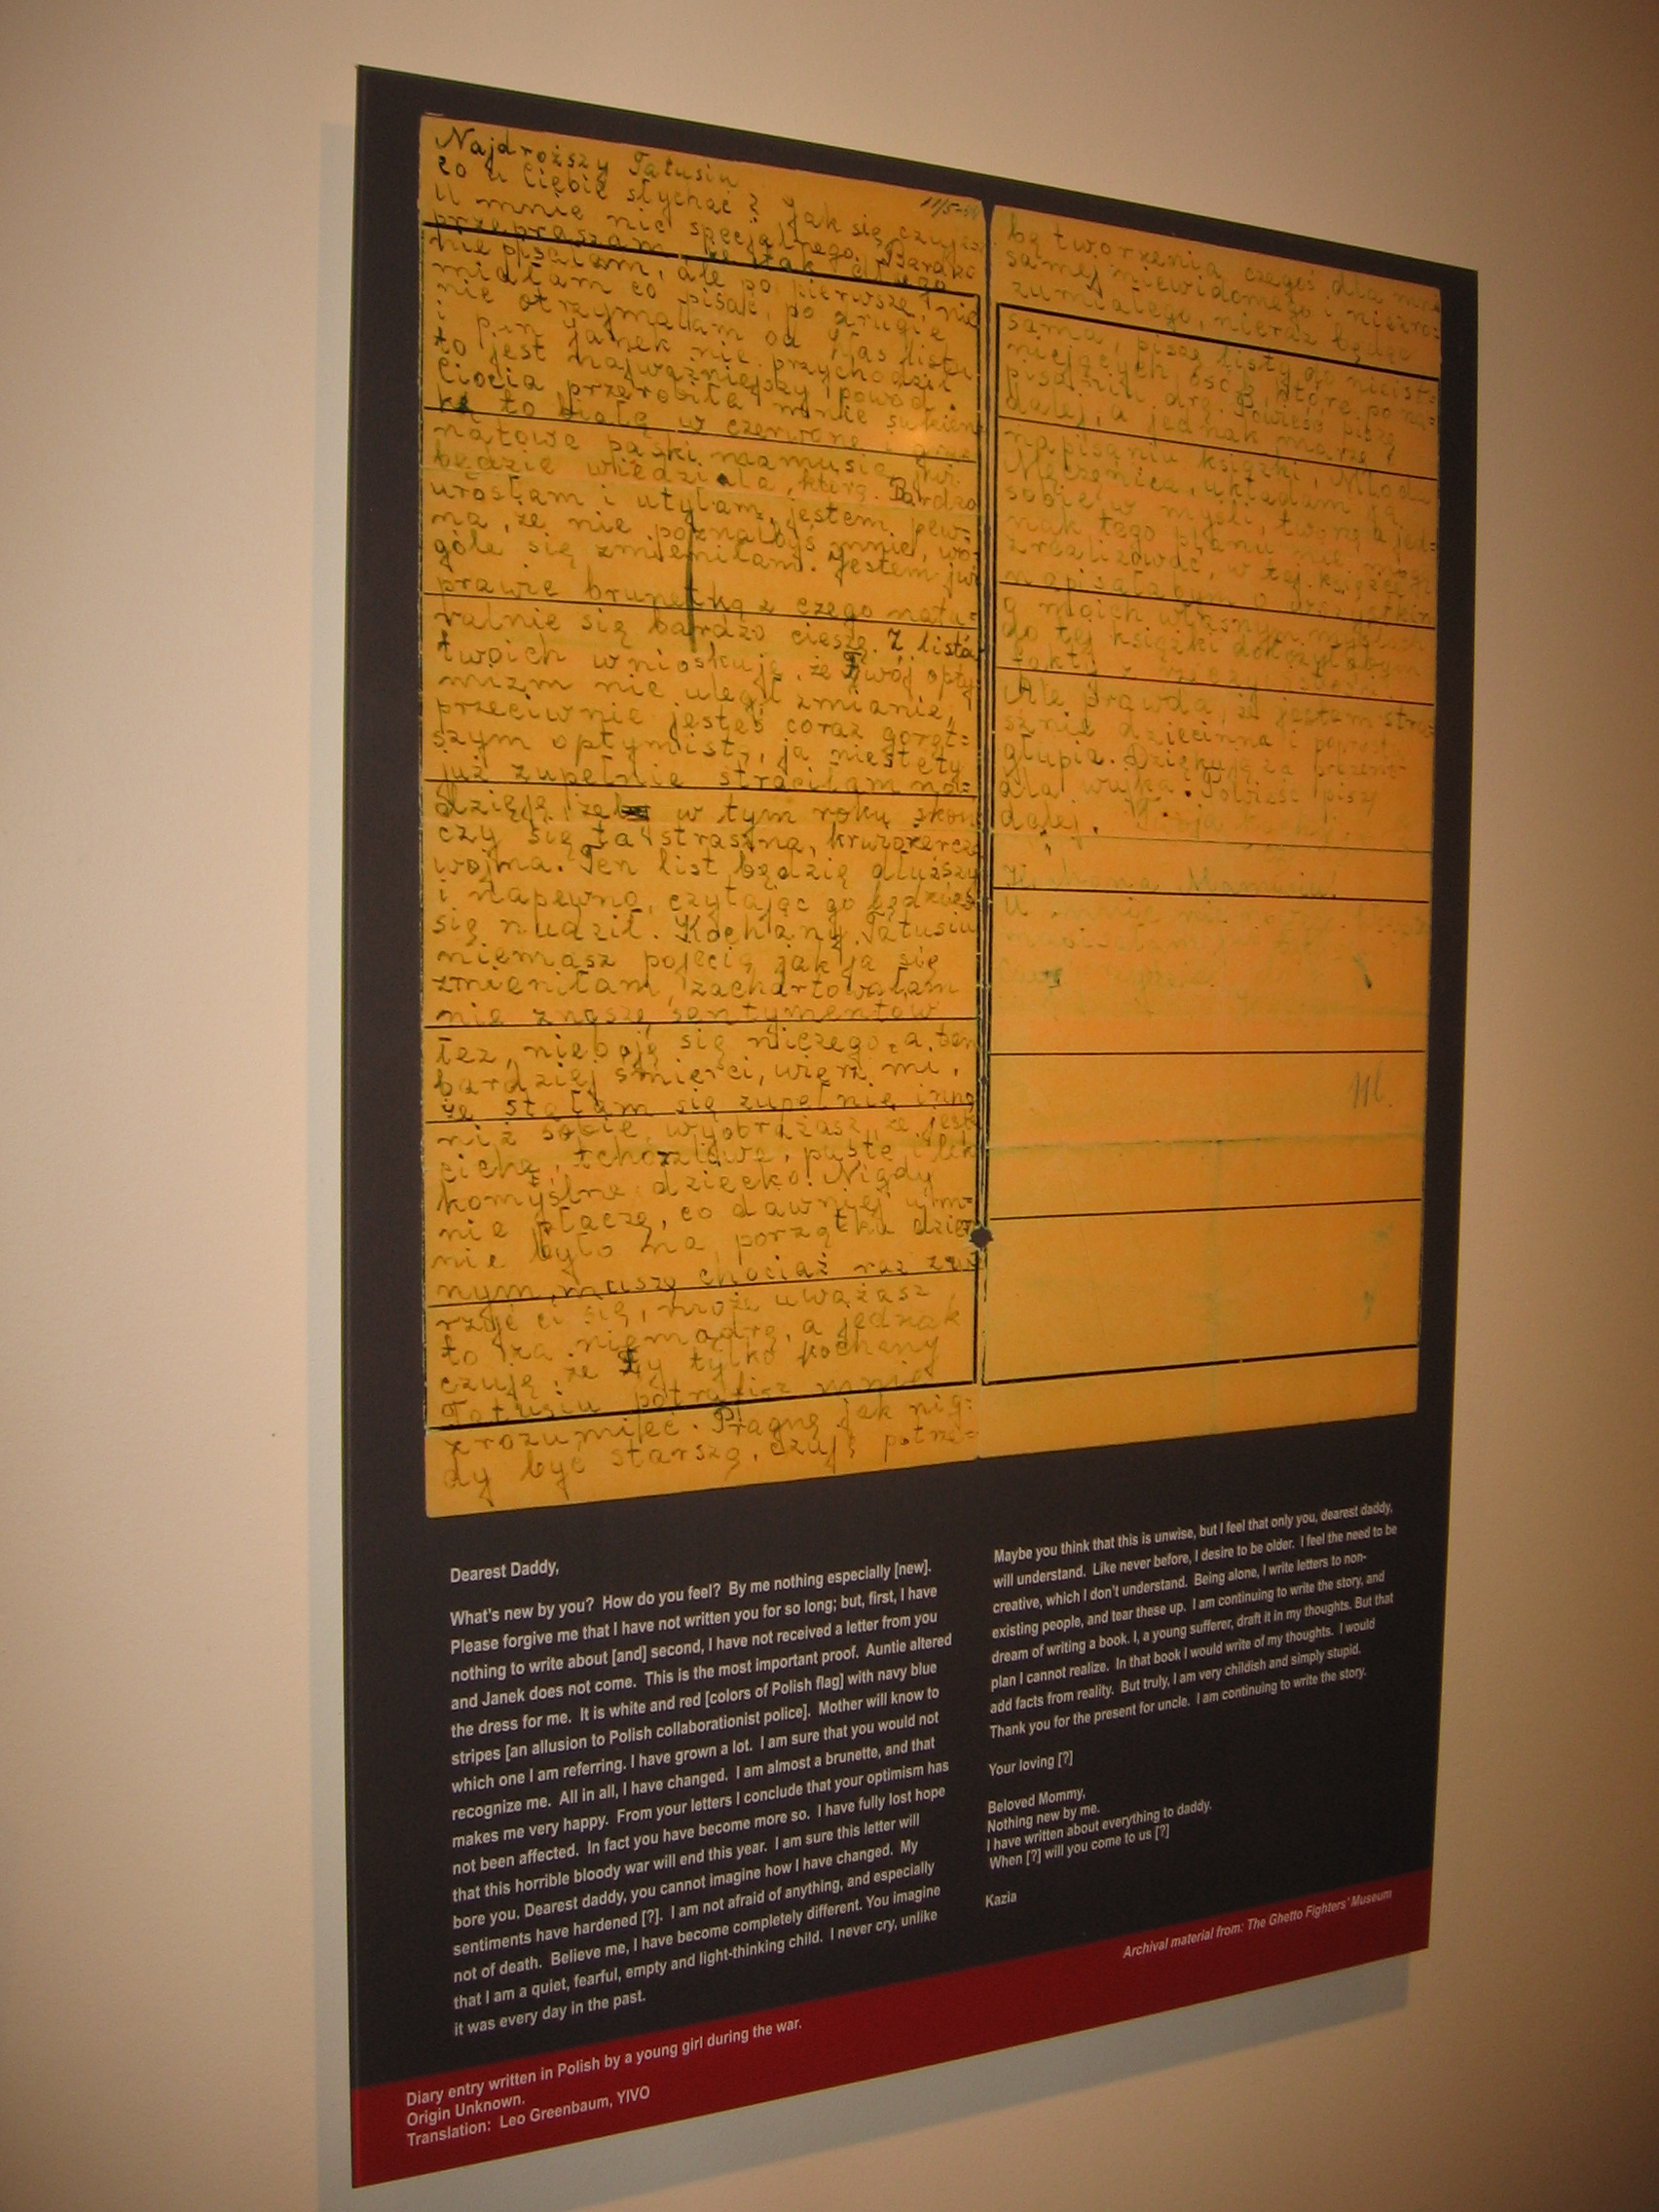 Najdroższy Tatusiu
11/5-44
co u Ciebie słychać? Jak się czujesz
U mnie nic specjalnego. Bardzo
przepraszam że tak długo
nie pisałam, ale po pierwsze nie
miałam co pisać, po drugie
nie otrzymałam od Was listu
i p. Janek nie przychodził
to jest najważniejszy powód.
Ciocia przerobiła mnie sukien
kę to białą w czerwone i gra
natowe paski mamusia już
będzie wiedziała, którą. Bardzo
urosłam i utyłam, jestem pew-
na, że nie poznałbyś mnie, wo-
góle się zmieniłam. Jestem już
prawie brunetką z czego natu-
ralnie się bardzo cieszę. Z listów
twoich wnioskuję, że Twój opty
mizm nie uległ zmianie,
przeciwnie jesteś coraz goręt=
szym optymistą, ja niestety
już zupełnie straciłam na=
dzieję, że w tym roku skoń
czy się ta straszna, krwiożercza
wojna. Ten list będzie dłuższy
i napewno, czytając go będziesz
się nudził. Kochany Tatusiu
niemasz pojęcia jak ja się
zmieniłam, zachartowałam
nie znoszę sentymentów
też, nieboję się niczego, a tem
bardziej śmierci, wierz mi,
że stałam się zupełnie inna
niż sobie wyobrażasz, że jest
ciche, tchórzliwe, puste i lek
komyślne dziecko! Nigdy
nie płaczę, co dawniej u m-
nie było na porządku dzien
nym, muszę chociaż raz zwie
rzyć ci się, może uważasz
to za niemądre, a jednak
czuję, że Ty tylko kochany
Tatusiu potrafisz mnie
zrozumieć. Pragnę jak nig=
dy być starszą, czuję potrze=
bę tworzenia czegoś dla mnie
samej niewidomego i niezro=
zumiałego, nieraz będąc
sama, piszę listy do nieist=
niejących osób, które po na=
pisaniu drę. Powieść piszę
dalej, a jednak marzę o
napisaniu książki, Młoda
Męczennica, układam ją
sobie w myśli, tworzę a jed=
nak tego planu nie mogę
zrealizować, w tej książce
napisałabym o wszystkim
o moich własnych myślach
do tej książki dołożyłabym
fakty z rzeczywistości.
Ale prawda, że jestem stra=
sznie dziecinna i poprostu
głupia. Dziękuję za prezent
dla wujka. Powieść piszę
dalej. Twoja
Kochana Mamusiu!
U mnie nic
Dearest Daddy,
What's new by you? How do you feel? By me nothing especially [new].
Please forgive me that I have not written you for so long; but, first, I have
nothing to write about [and] second, I have not received a letter from you
and Janek does not come. This is the most important proof. Auntie altered
the dress for me. It is white and red [colors of Polish flag] with navy blue
stripes [an allusion to Polish collaborationist police]. Mother will know to
which one I am referring. I have grown a lot. I am sure that you would not
recognize me. All in all, I have changed. I am almost a brunette, and that
makes me very happy. From your letters I conclude that your optimism has
not been affected. In fact you have become more so. I have fully lost hope
that this horrible bloody war will end this year. I am sure this letter will
bore you. Dearest daddy, you cannot imagine how I have changed. My
sentiments have hardened [?]. I am not afraid of anything, and especially
not of death. Believe me, I have become completely different. You imagine
that I am a quiet, fearful, empty and light-thinking child. I never cry, unlike
it was every day in the past.
Maybe you think that this is unwise, but I feel that only you, dearest daddy,
will understand. Like never before, I desire to be older. I feel the need to be
creative, which I don't understand. Being alone, I write letters to non-
existing people, and tear these up. I am continuing to write the story, and
dream of writing a book. I, a young sufferer, draft it in my thoughts. But that
plan I cannot realize. In that book I would write of my thoughts. I would
add facts from reality. But truly, I am very childish and simply stupid.
Thank you for the present for uncle. I am continuing to write the story.
Your loving [?]
Beloved Mommy,
Nothing new by me.
I have written about everything to daddy.
When [?] will you come to us [?]
Kazia
Archival material from: The Ghetto Fighters' Museum
Diary entry written in Polish by a young girl during the war.
Origin Unknown.
Translation: Leo Greenbaum, YIVO